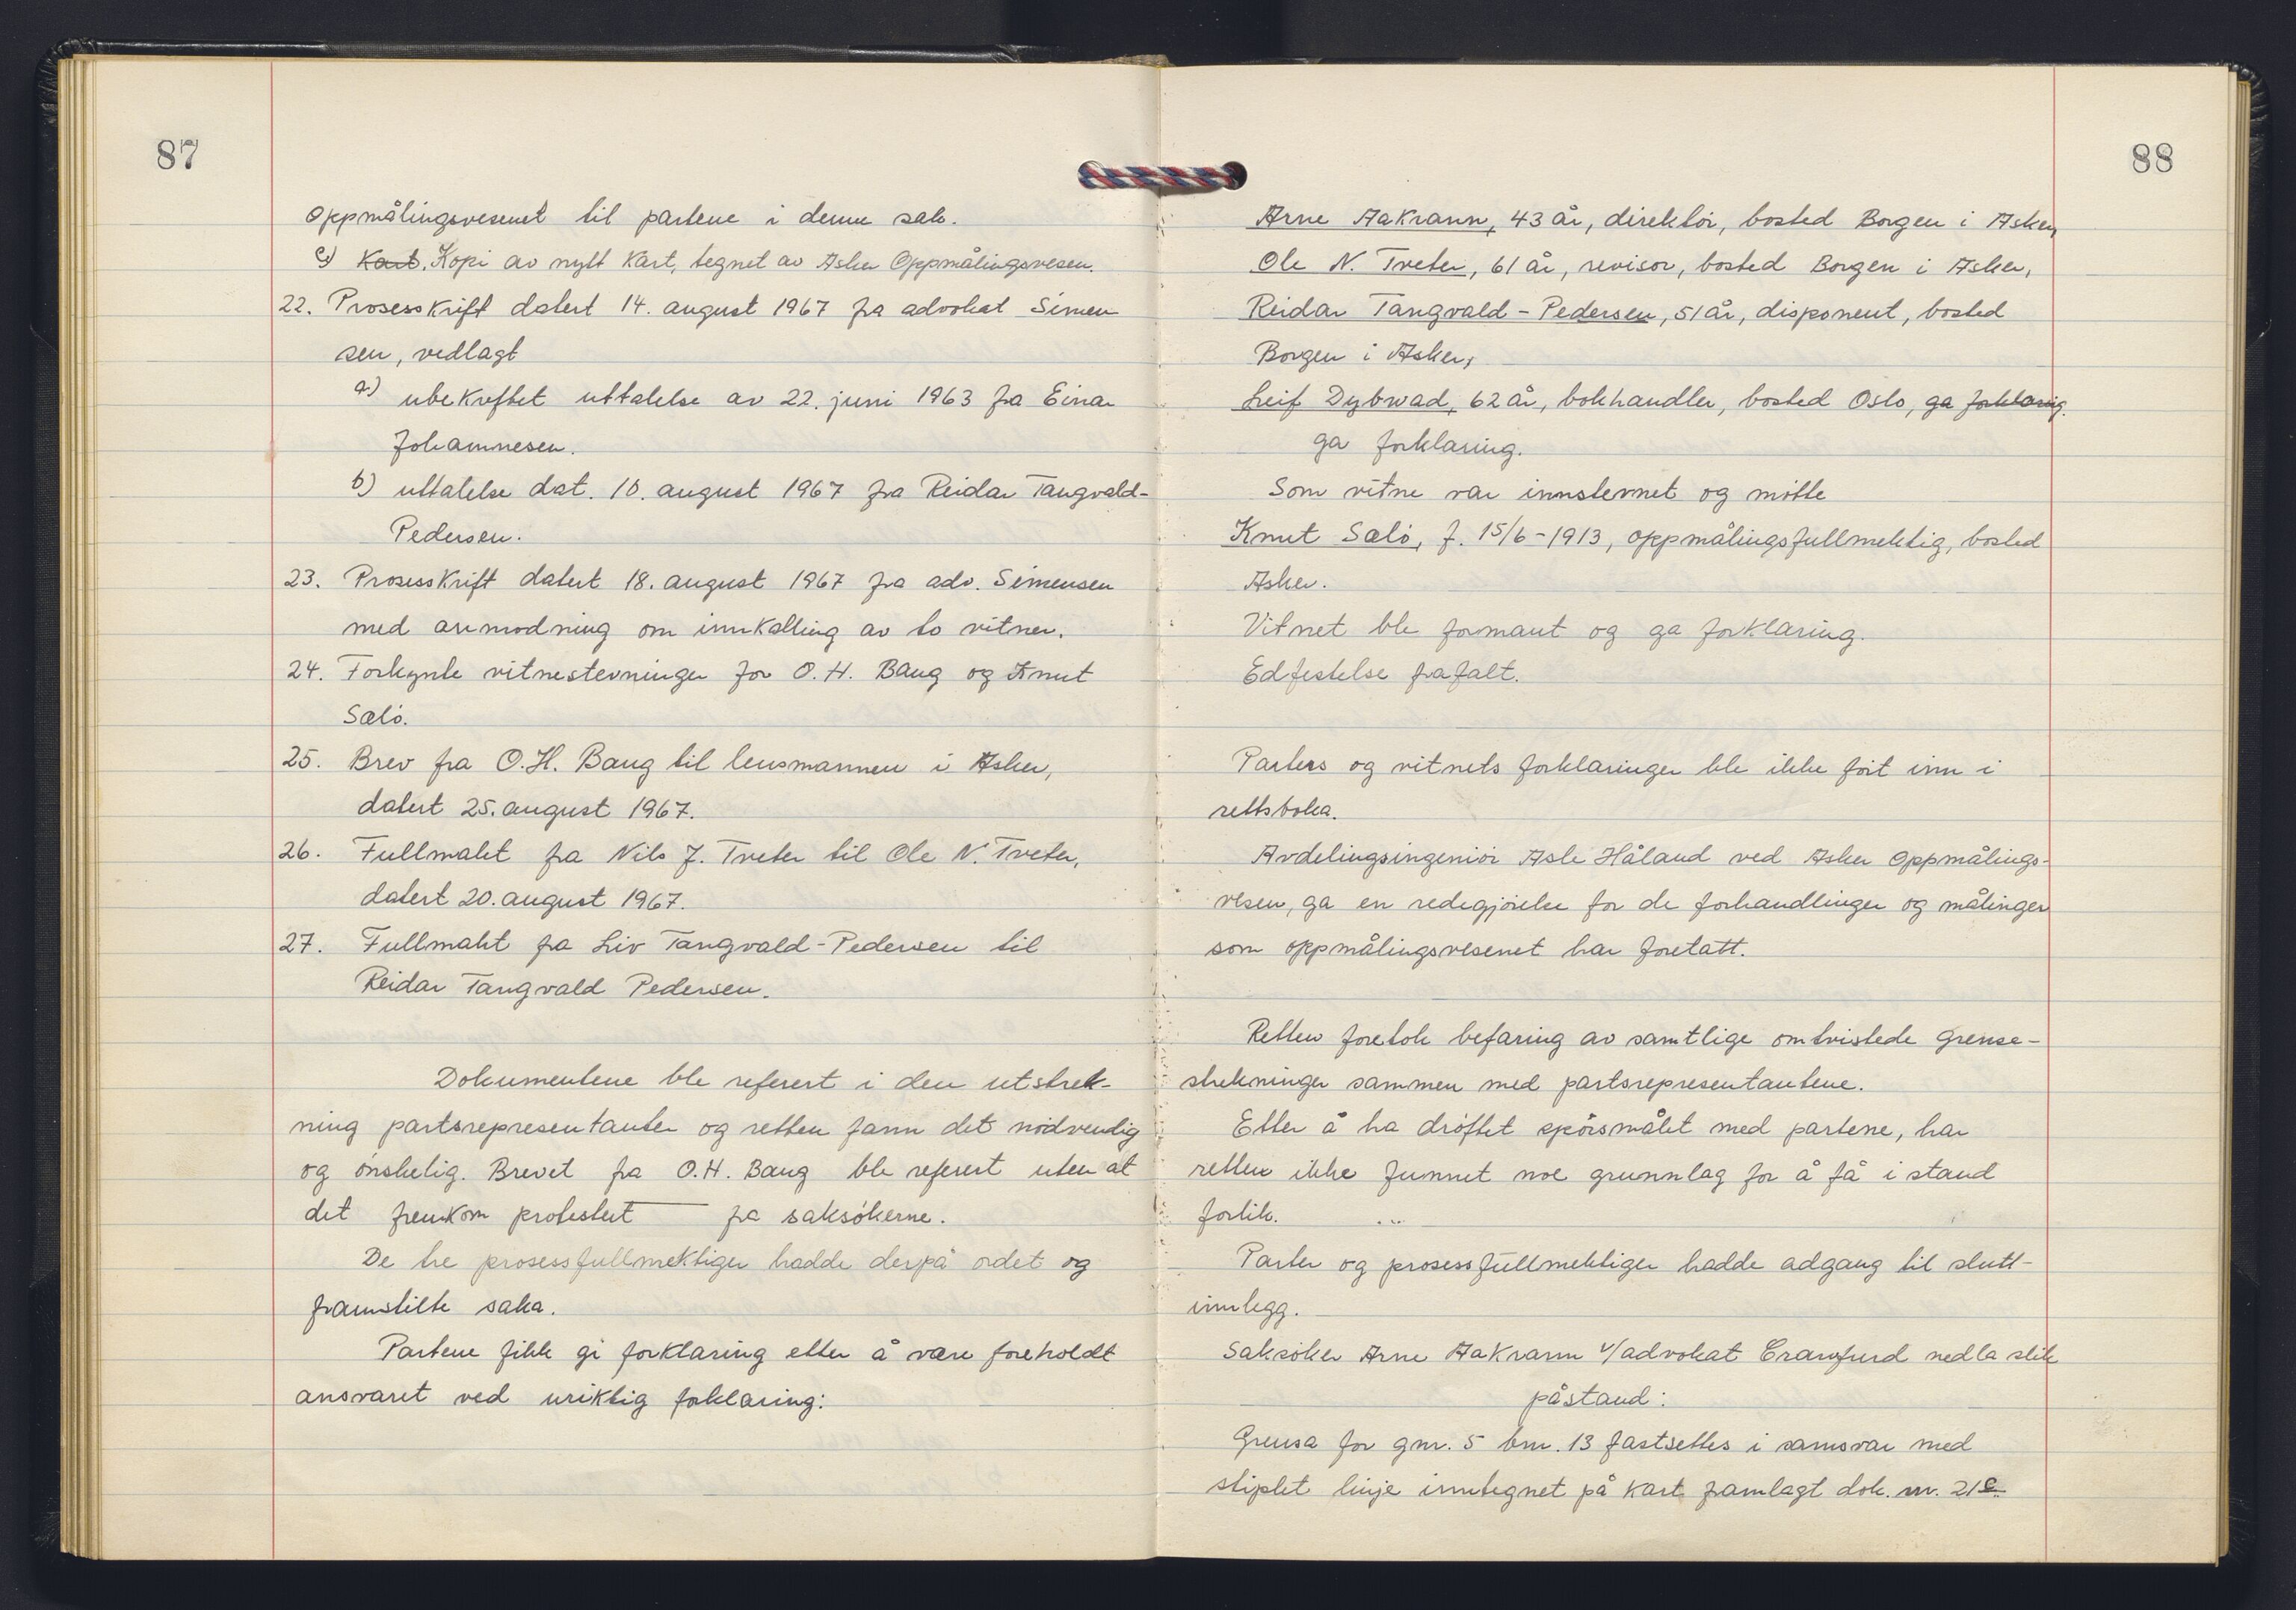 87
Oppmålingsvesenet til partene i denne sak.
c) Kart. Kopi av nytt kart, tegnet av Asker Oppmålingsvesen.
22. Prosesskrift datert 14. august 1967 fra advokat Simen
sen, vedlagt
a) ubekreftet uttalelse av 22. juni 1963 fra Einar
Johannesen.
b) uttalelse dat. 10. august 1967 fra Reidar Tangvald-
Pedersen.
23. Prosesskrift datert 18. august 1967 fra adv. Simensen
med anmodning om innkalling av to vitner.
24. Forkynte vitnestevninger for O. H. Baug og Knut
Sælø.
25. Brev fra O.H. Baug til lensmannen i Asker,
datert 25. august 1967.
26. Fullmakt fra Nils J. Tveter til Ole N. Tveter,
datert 20. august 1967.
27. Fullmakt fra Liv Tangvald-Pedersen til
Reidar Tangvald Pedersen.
Dokumentene ble referert i den utstrek-
ning partsrepresentanter og retten fann det nødvendig
og ønskelig. Brevet fra O.H. Baug ble referert uten at
det fremkom protestert fra saksøkerne.
De tre prosessfullmektiger hadde derpå ordet og
framstilte saka.
Partene fikk gi forklaring etter å være foreholdt
ansvaret ved uriktig forklaring:
88
Arne Aakrann, 43 år, direktør, bosted Borgen i Asker,
Ole N. Tveter, 61 år, revisor, bosted Borgen i Asker,
Reidar Tangvald - Pedersen, 51 år, disponent, bosted
Borgen i Asker,
Leif Dybwad, 62 år, bokhandler, bosted Oslo, ga forklaring.
ga forklaring.
Som vitne var innstevnet og møtte
Knut Sælø, f. 15/6-1913, oppmålingsfullmektig, bosted
Asker.
Vitnet ble formant og ga forklaring.
Edfestelse frafalt.
Parters og vitnets forklaringer ble ikke ført inn i
rettsboka.
Avdelingsingeniør Asle Håland ved Asker Oppmålings-
vesen, ga en redegjørelse for de forhandlinger og målinger
som oppmålingsvesenet har foretatt.
Retten foretok befaring av samtlige omtvistede grense-
strekninger sammen med partsrepresentantene.
Etter å ha drøftet spørsmålet med partene, har
retten ikke funnet noe grunnlag for å få i stand
forlik.
Parter og prosessfullmektiger hadde adgang til slutt-
innlegg.
Saksøker Arne Aakrann v/advokat Crawfurd nedla slik
påstand:
Grensa for gnr. 5 bnr. 13 fastsettes i samsvar med
stiplet linje inntegnet på kart framlagt dok. nr. 21c.